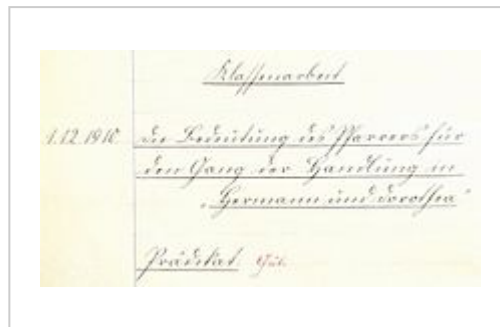 Klassenarbeit
1.12.1910 die Bedeutung des Pfarrers für
den Gang der Handlung in
„Hermann und Dorothea"
Prädikat. Gut.